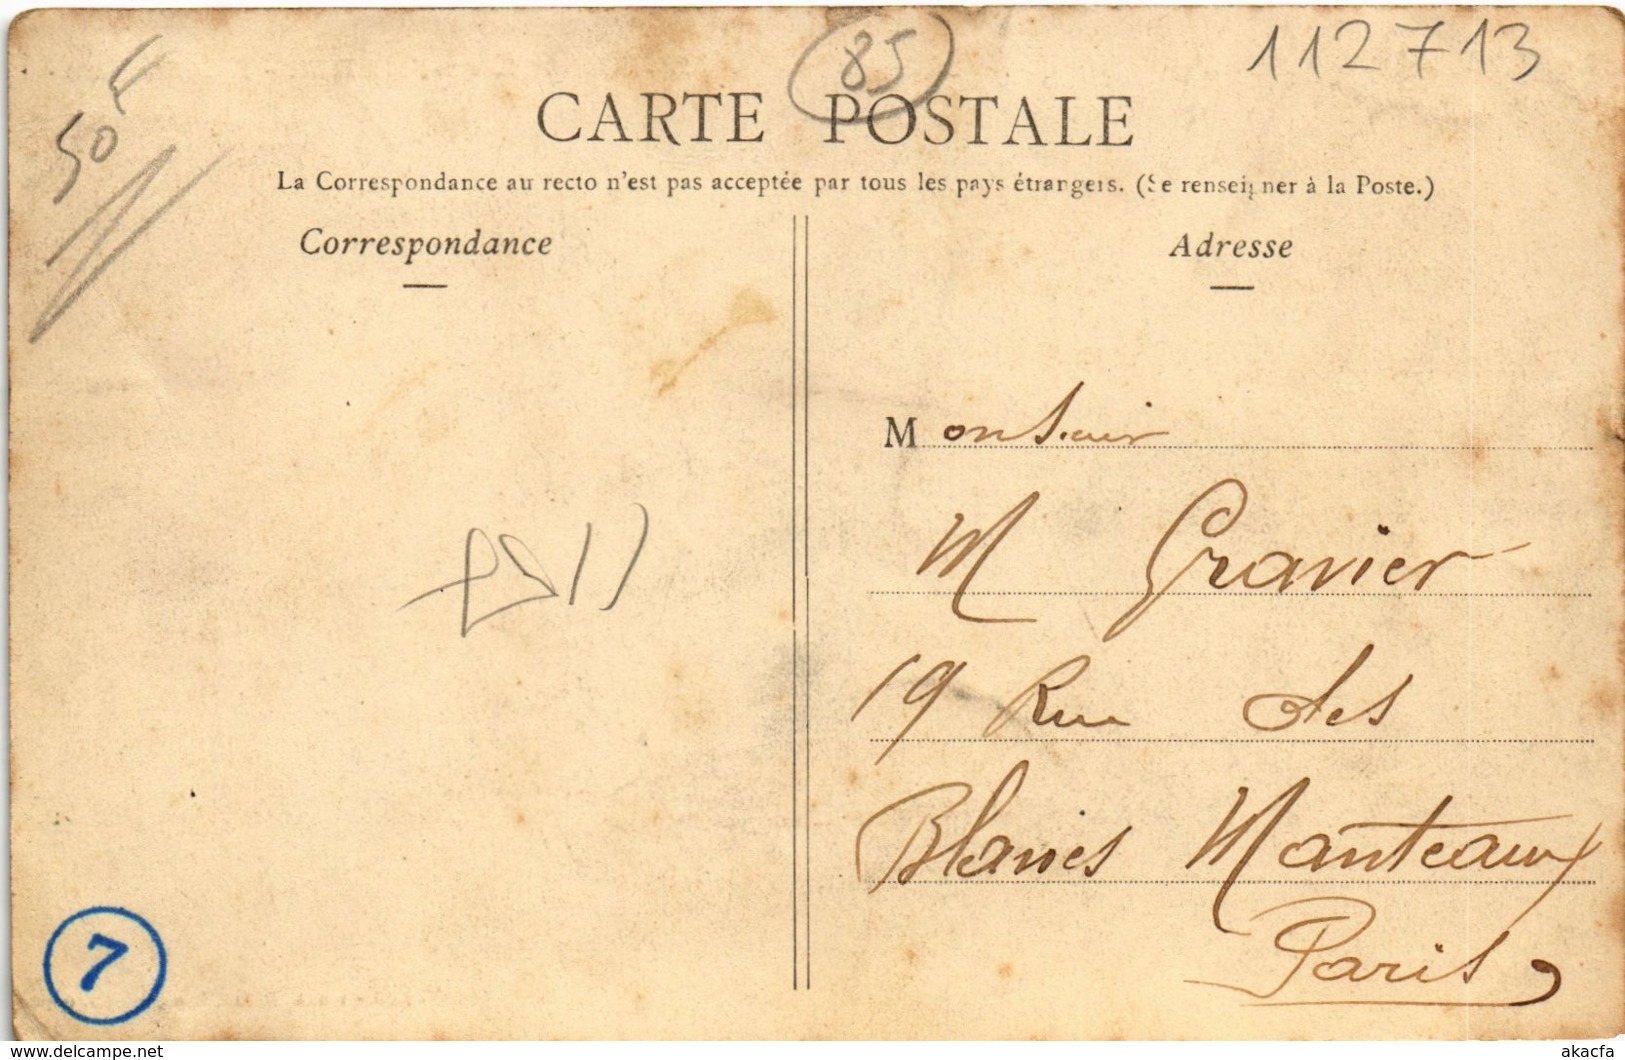 50F
85
112713
CARTE POSTALE
La Correspondance au recto n'est pas acceptée par tous les pays étrangers. (Se renseigner à la Poste.)
Correspondance
Adresse
Monsieur
M Gravier
19 Rue des
Blancs Manteaux
Paris
7
www.delcampe.net
akacfa